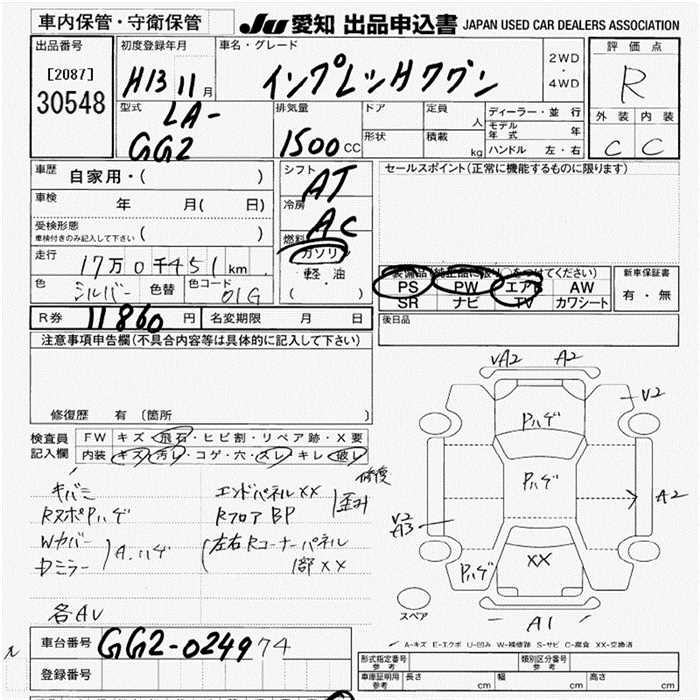 車内保管・守衛保管
JU 愛知 出品申込書 JAPAN USED CAR DEALERS ASSOCIATION
出品番号
[2087]
30548
初度登録年月
H13 11月
車名・グレード
インプレッサワゴン
2WD
・
4WD
評価点
R
外装 内装
C C
型式
LA-
GG2
排気量
1500CC
ドア
形状
定員 人
積載 kg
ディーラー・並行
モデル年式 年
ハンドル 左・右
車歴
自家用・( )
車検
年 月( 日)
受検形態
車検付きのみ記入して下さい ( )
走行
17万0千451km
色 シルバー 色替 色コード 01G
シフト
AT
冷房
AC
燃料
ガソリン
軽油
( ・ )
セールスポイント(正常に機能するものに限ります)
装備品(純正品に限り○をつけてください)
PS PW エアB AW
SR ナビ TV カワシート
新車保証書
有・無
R券 11860円 名変期限 月 日
後日品
注意事項申告欄(不具合内容等は具体的に記入して下さい)
修復歴 有 〔箇所 〕
検査員記入欄
FW キズ・飛石・ヒビ割・リペア跡・X要
内装 キズ・汚レ・コゲ・穴・スレ・キレ・破レ
キバミ
RスポPハゲ
Wカバー
Dミラー
A.ハゲ
各AU
エンドパネルXX
RフロアBP
修復
歪み
左右Rコーナーパネル
1部XX
VA2 A2
V2
Pハゲ
Pハゲ
A2
V2
A3
XX
Pハゲ
A1
スペア
A-キズ E-エクボ U-凹み W-補修跡 S-サビ C-腐食 XX-交換済
車台番号 GG2-024974
登録番号
形式指定番号
参考
類別区分番号
参考
車庫証明用
参考
長さ cm 幅 cm 高さ cm